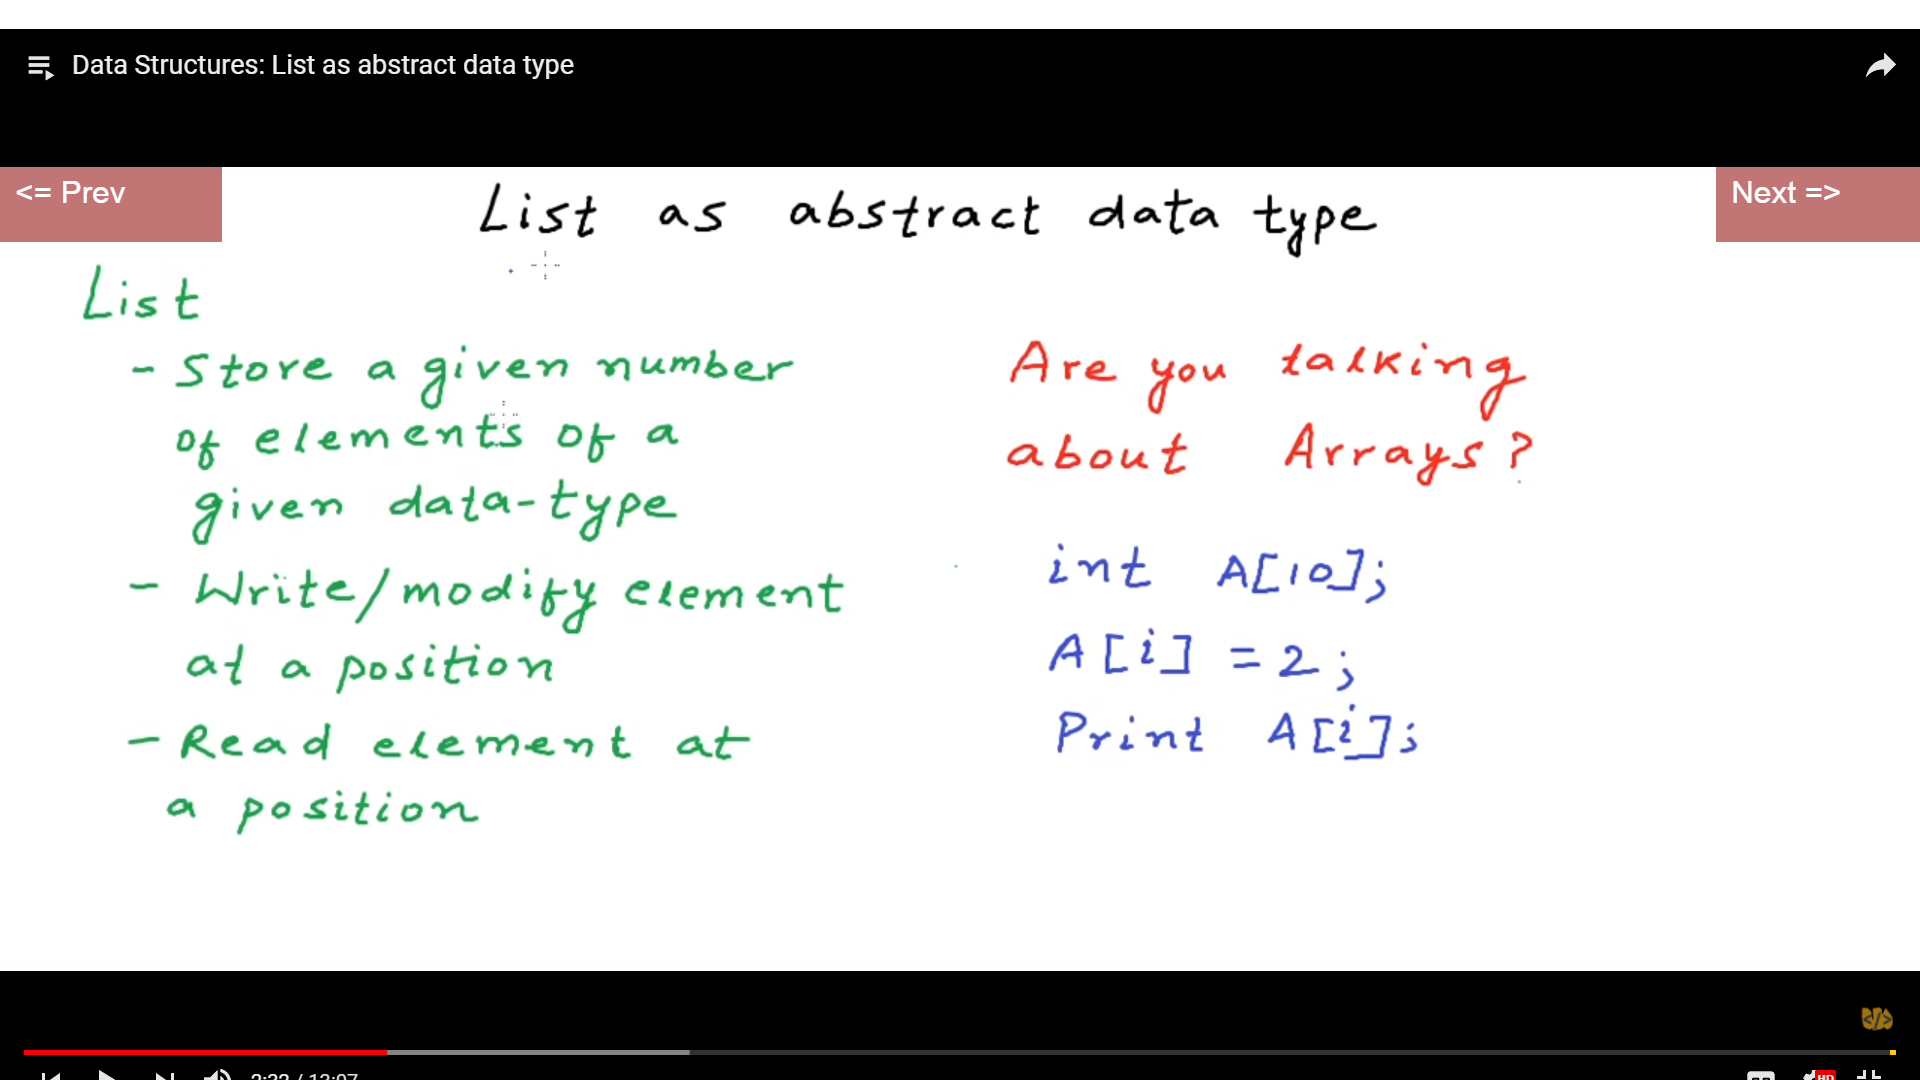 Data Structures: List as abstract data type
<= Prev
Next =>
List as abstract data type
List
- Store a given number
of elements of a
given data-type
- Write/modify element
at a position
- Read element at
a position
Are you talking
about Arrays?
int A[10];
A[i] = 2;
Print A[i];
</>
2:32 / 13:07
HD